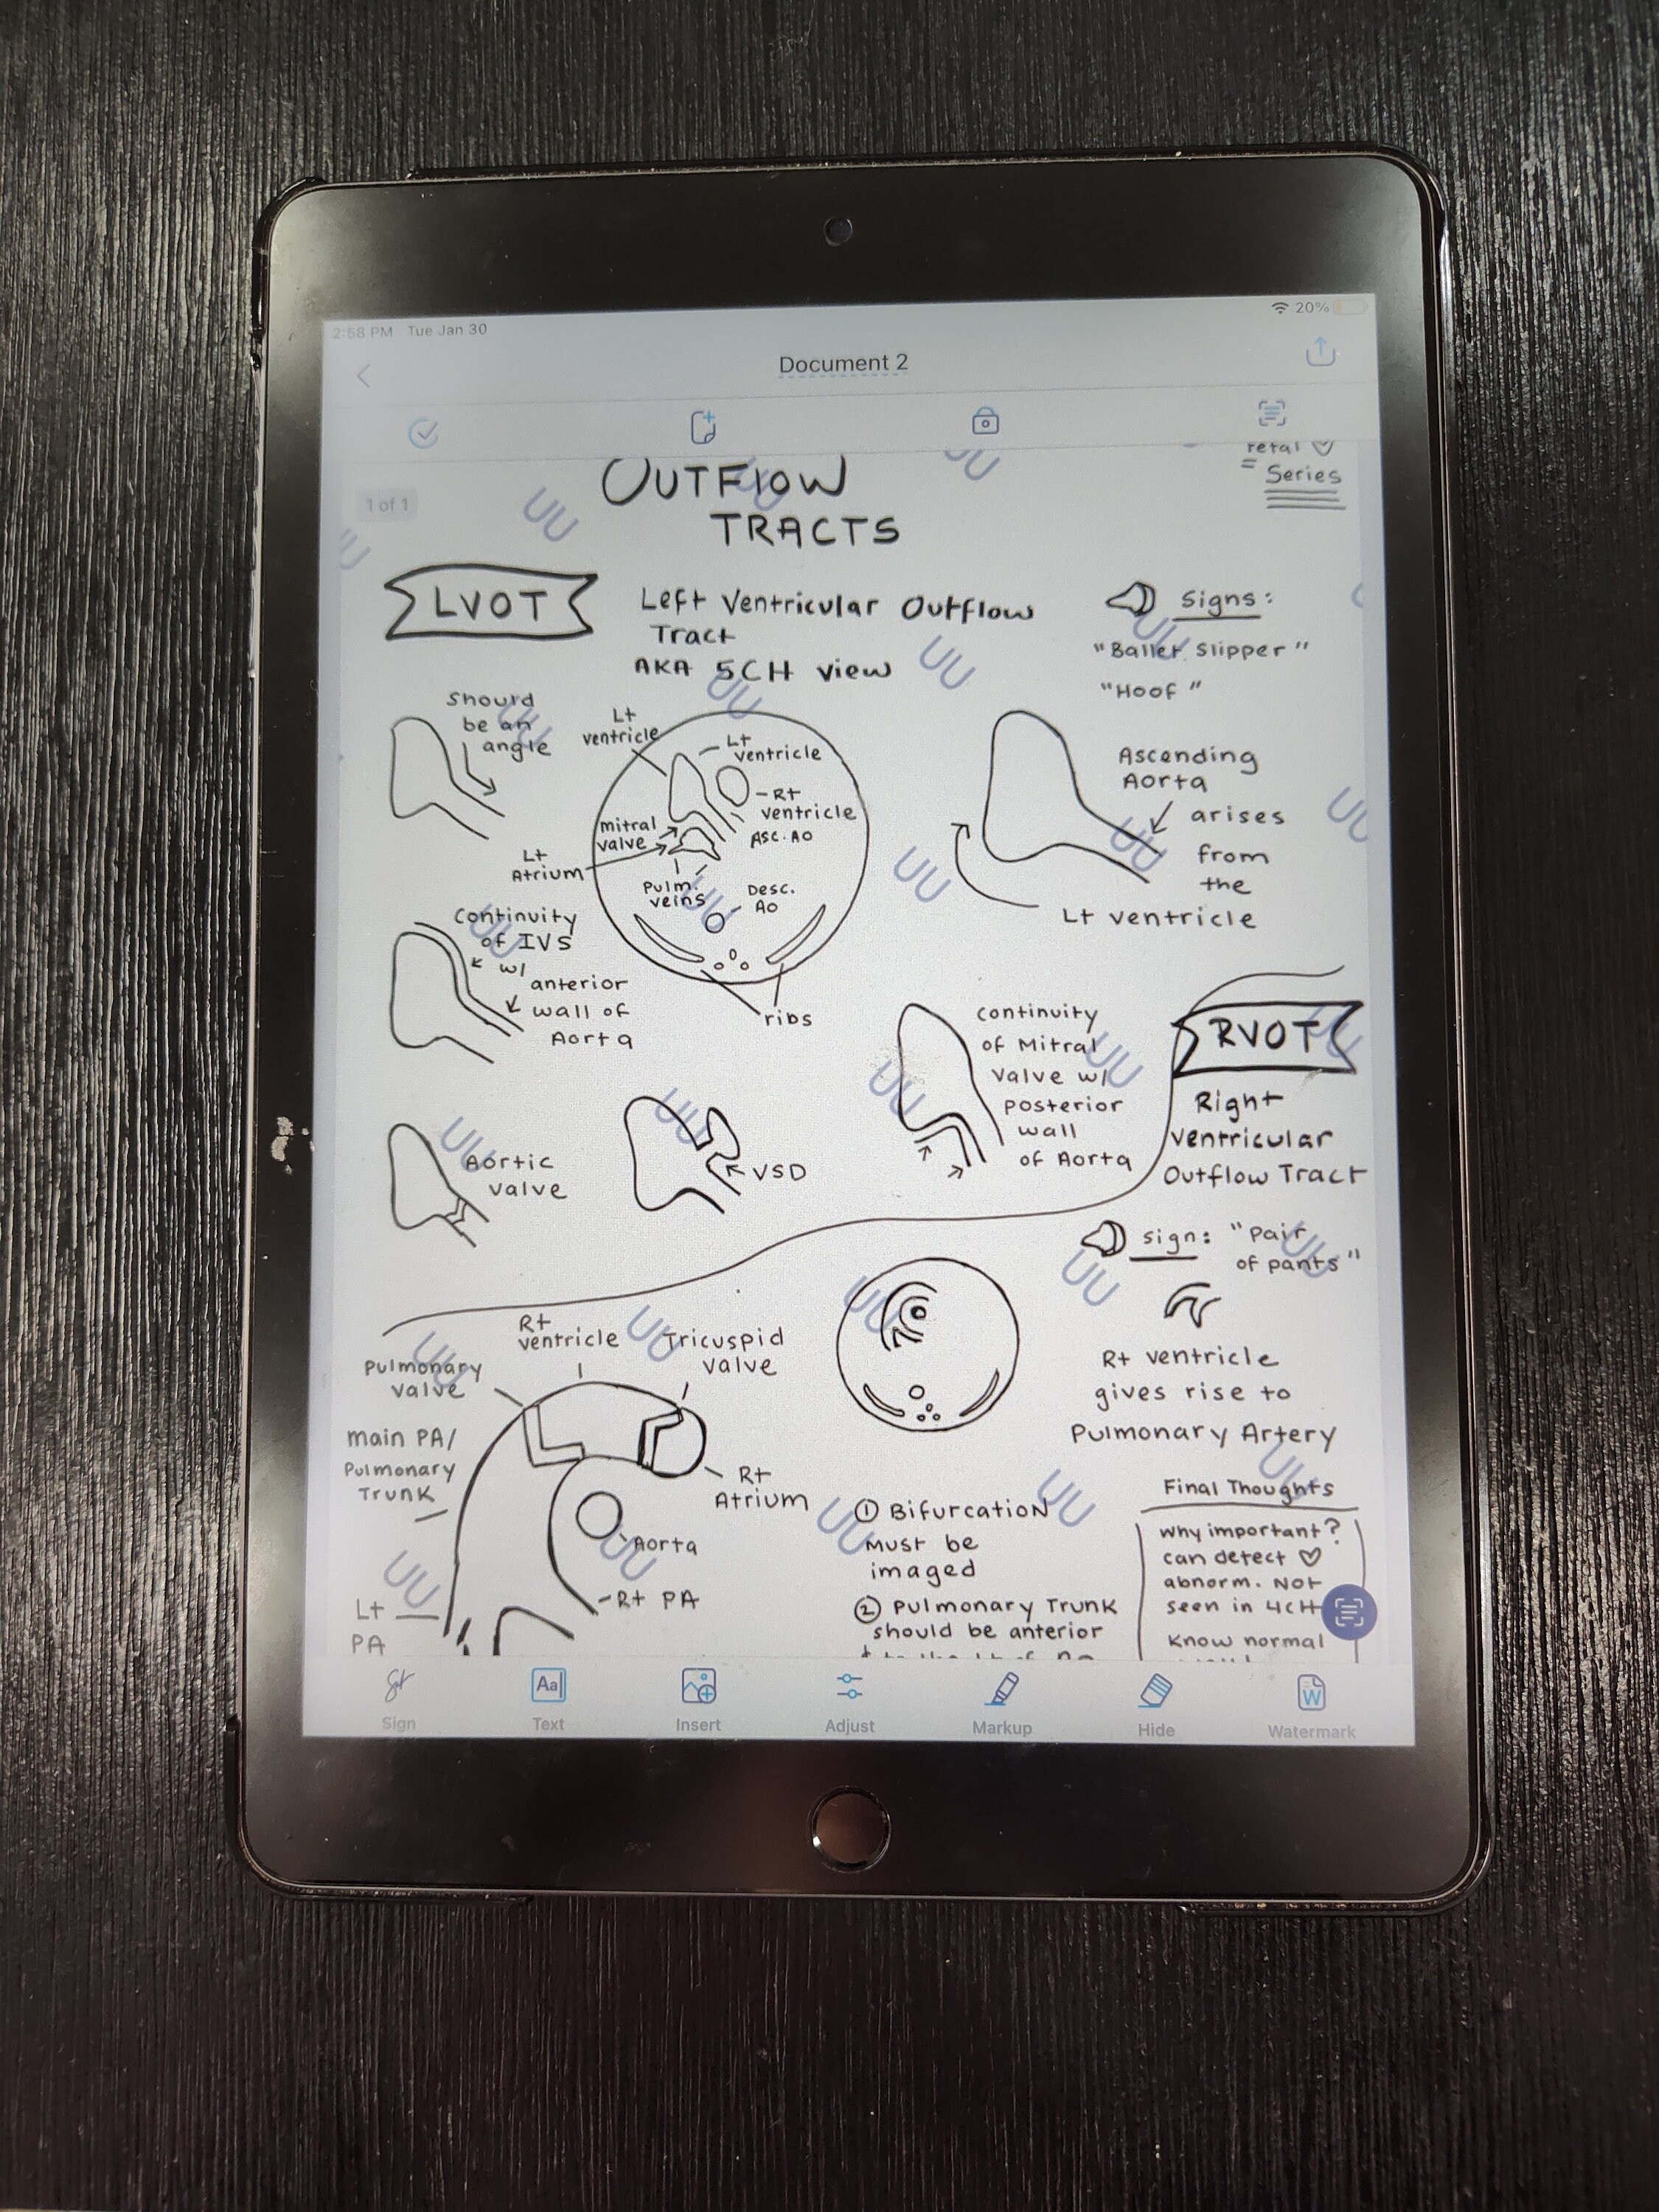 2:58 PM Tue Jan 30
20%
Document 2
1 of 1
fetal ♡
= Series
OUTFLOW
TRACTS
LVOT
Left Ventricular Outflow
Tract
AKA 5CH view
Signs:
"Ballet Slipper"
"Hoof"
Shourd
be an
angle
Lt
ventricle
Lt
ventricle
Rt
ventricle
Asc. Ao
mitral
valve
Lt
Atrium
Pulm.
veins
Desc.
Ao
ribs
Ascending
Aorta
arises
from
the
Lt ventricle
Continuity
of IVS
w/
anterior
wall of
Aorta
Continuity
of Mitral
Valve w/
posterior
wall
of Aorta
Aortic
valve
VSD
RVOT
Right
Ventricular
Outflow Tract
sign: "Pair
of pants"
Rt ventricle
gives rise to
Pulmonary Artery
Rt
ventricle
Tricuspid
Valve
Pulmonary
Valve
main PA/
Pulmonary
Trunk
Rt
Atrium
Aorta
Rt PA
Lt
PA
① Bifurcation
Must be
imaged
② Pulmonary Trunk
should be anterior
Final Thoughts
Why important?
can detect ♡
abnorm. Not
seen in 4CH
Know normal
Sign
Text
Insert
Adjust
Markup
Hide
Watermark